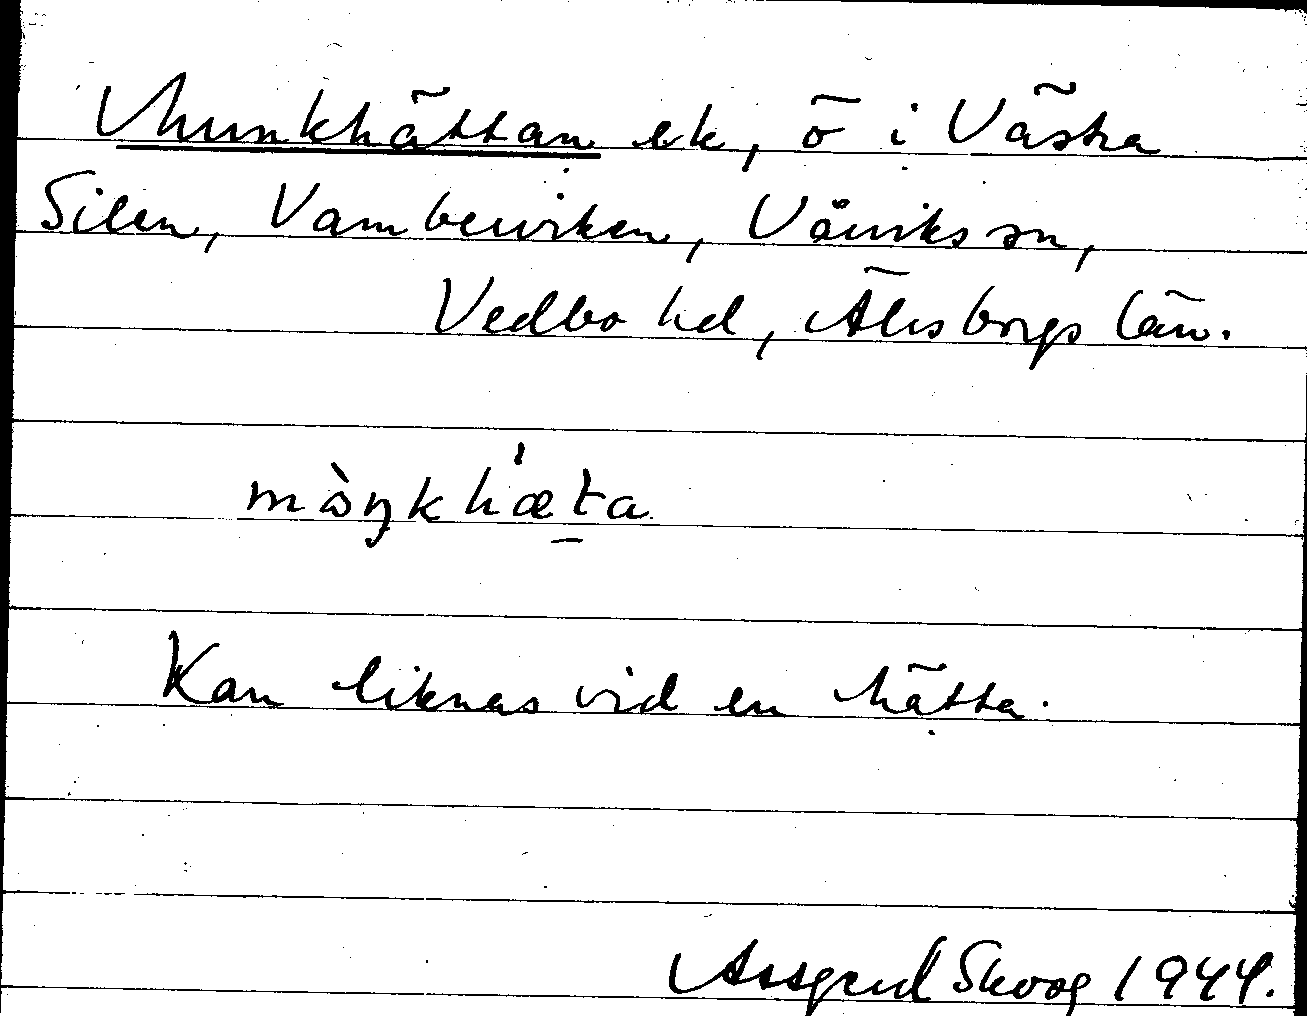 Munkhättan ek, ö i Västra
Silen, Vamberviken, Vårviks sn,
Vedbo hd, Älvsborgs län.
mòŋkhæ̍ta
Kan liknas vid en hätta.
Skoog 1944.